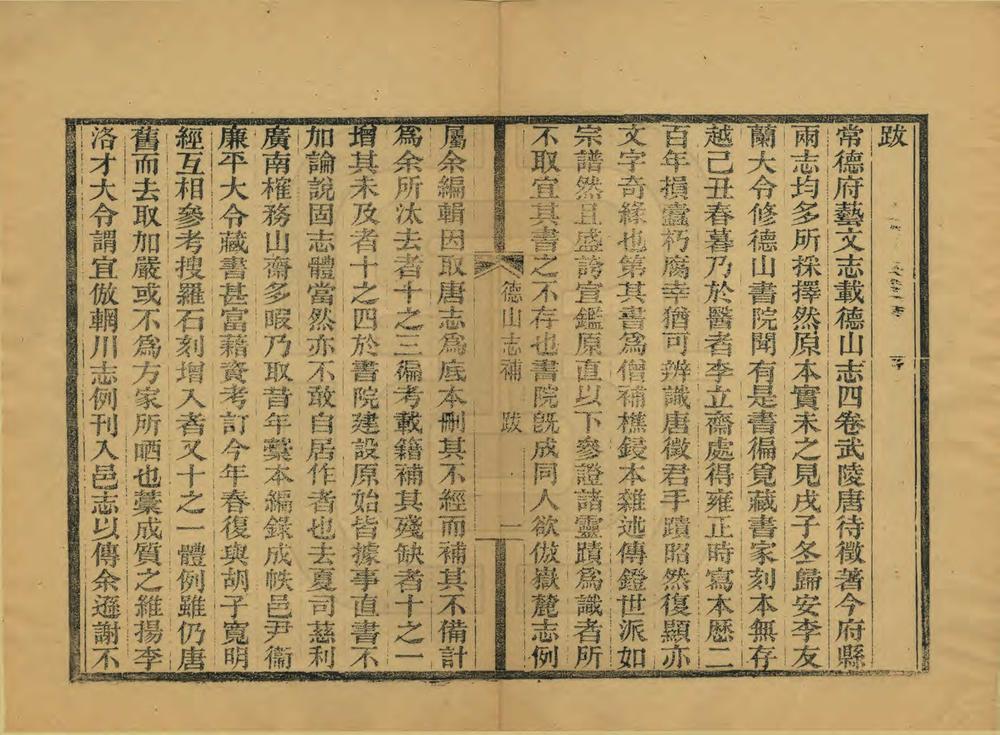 跋
常德府藝文志載德山志四卷武陵唐待徵著今府縣
兩志均多所採擇然原本實未之見戊子冬歸安李友
蘭大令修德山書院聞有是書徧覓藏書家刻本無存
越己丑春暮乃於醫者李立齋處得雍正時寫本歷二
百年損蠹朽腐幸猶可辨識唐徵君手蹟昭然復顯亦
文字奇緣也第其書為僧補樵鋟本雜述傳鐙世派如
宗譜然且盛誇宣鑑原直以下參證諸靈蹟為識者所
不取宜其書之不存也書院旣成同人欲倣嶽麓志例
德山志補 跋 一
屬余編輯因取唐志為底本刪其不經而補其不備計
為余所汰去者十之三徧考載籍補其殘缺者十之一
增其未及者十之四於書院建設原始皆據事直書不
加論說固志體當然亦不敢自居作者也去夏司慈利
廣南榷務山齋多暇乃取昔年藁本編錄成帙邑尹衞
廉平大令藏書甚富藉資考訂今年春復與胡子寬明
經互相參考搜羅石刻增入者又十之一體例雖仍唐
舊而去取加嚴或不為方家所哂也藁成質之維揚李
洛才大令謂宜倣輞川志例刊入邑志以傳余遜謝不